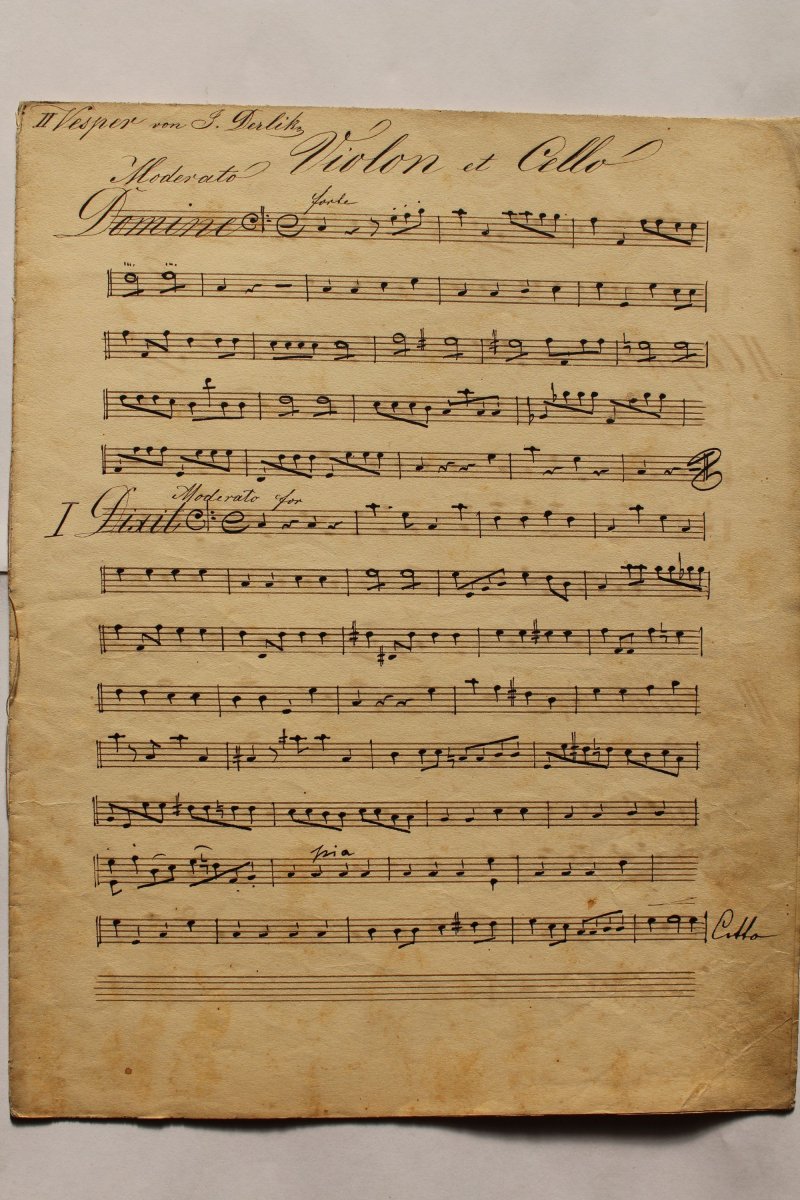 II Vesper von J. Derlik
Violon et Cello
Moderato
forte
Domine
Moderato for
I Dixit
pia
Citto